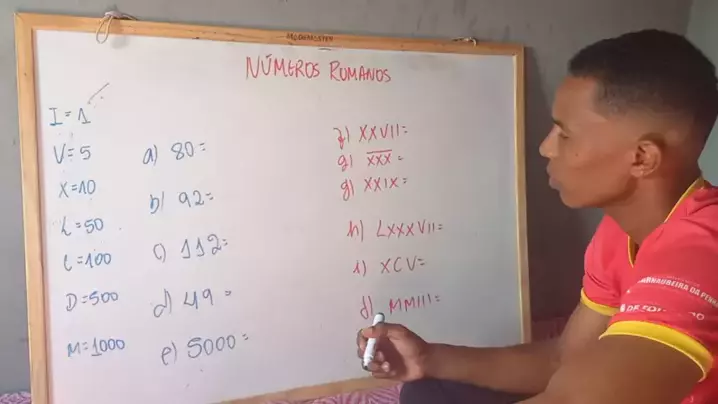 NÚMEROS ROMANOS
I=1
V=5
X=10
L=50
C=100
D=500
M=1000
a) 80=
b) 92=
c) 112=
d) 49=
e) 5000=
f) XXVII=
g) X̅X̅X̅=
g) XXIX=
h) LXXXVII=
i) XCV=
j) MMIII=
ARNAUBEIRA DA PENH